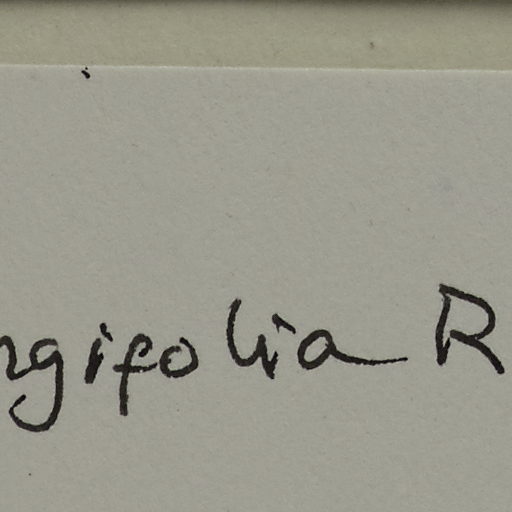 ngifolia R